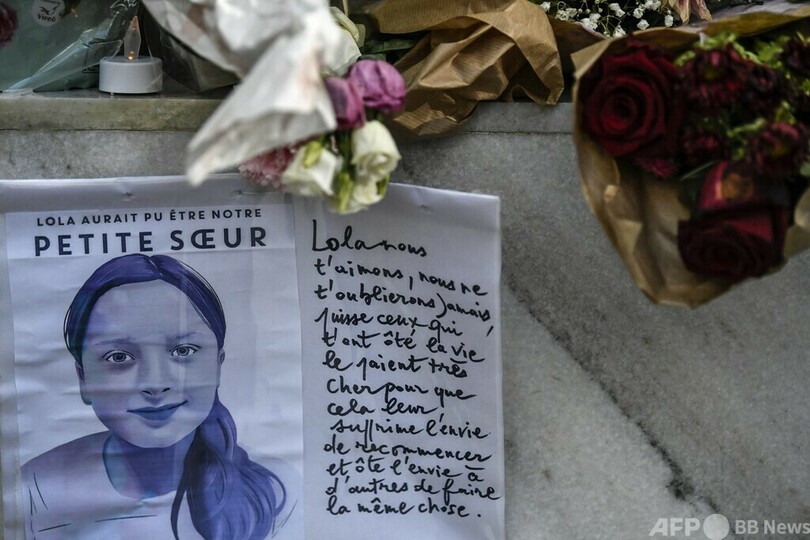 LOLA AURAIT PU ÊTRE NOTRE
PETITE SŒUR
Lola nous
t'aimons, nous ne
t'oublierons jamais,
puisse ceux qui
t'ont ôté la vie
le paient très
cher pour que
cela leur
supprime l'envie
de recommencer
et ôte l'envie à
d'autres de faire
la même chose.
AFP BB News